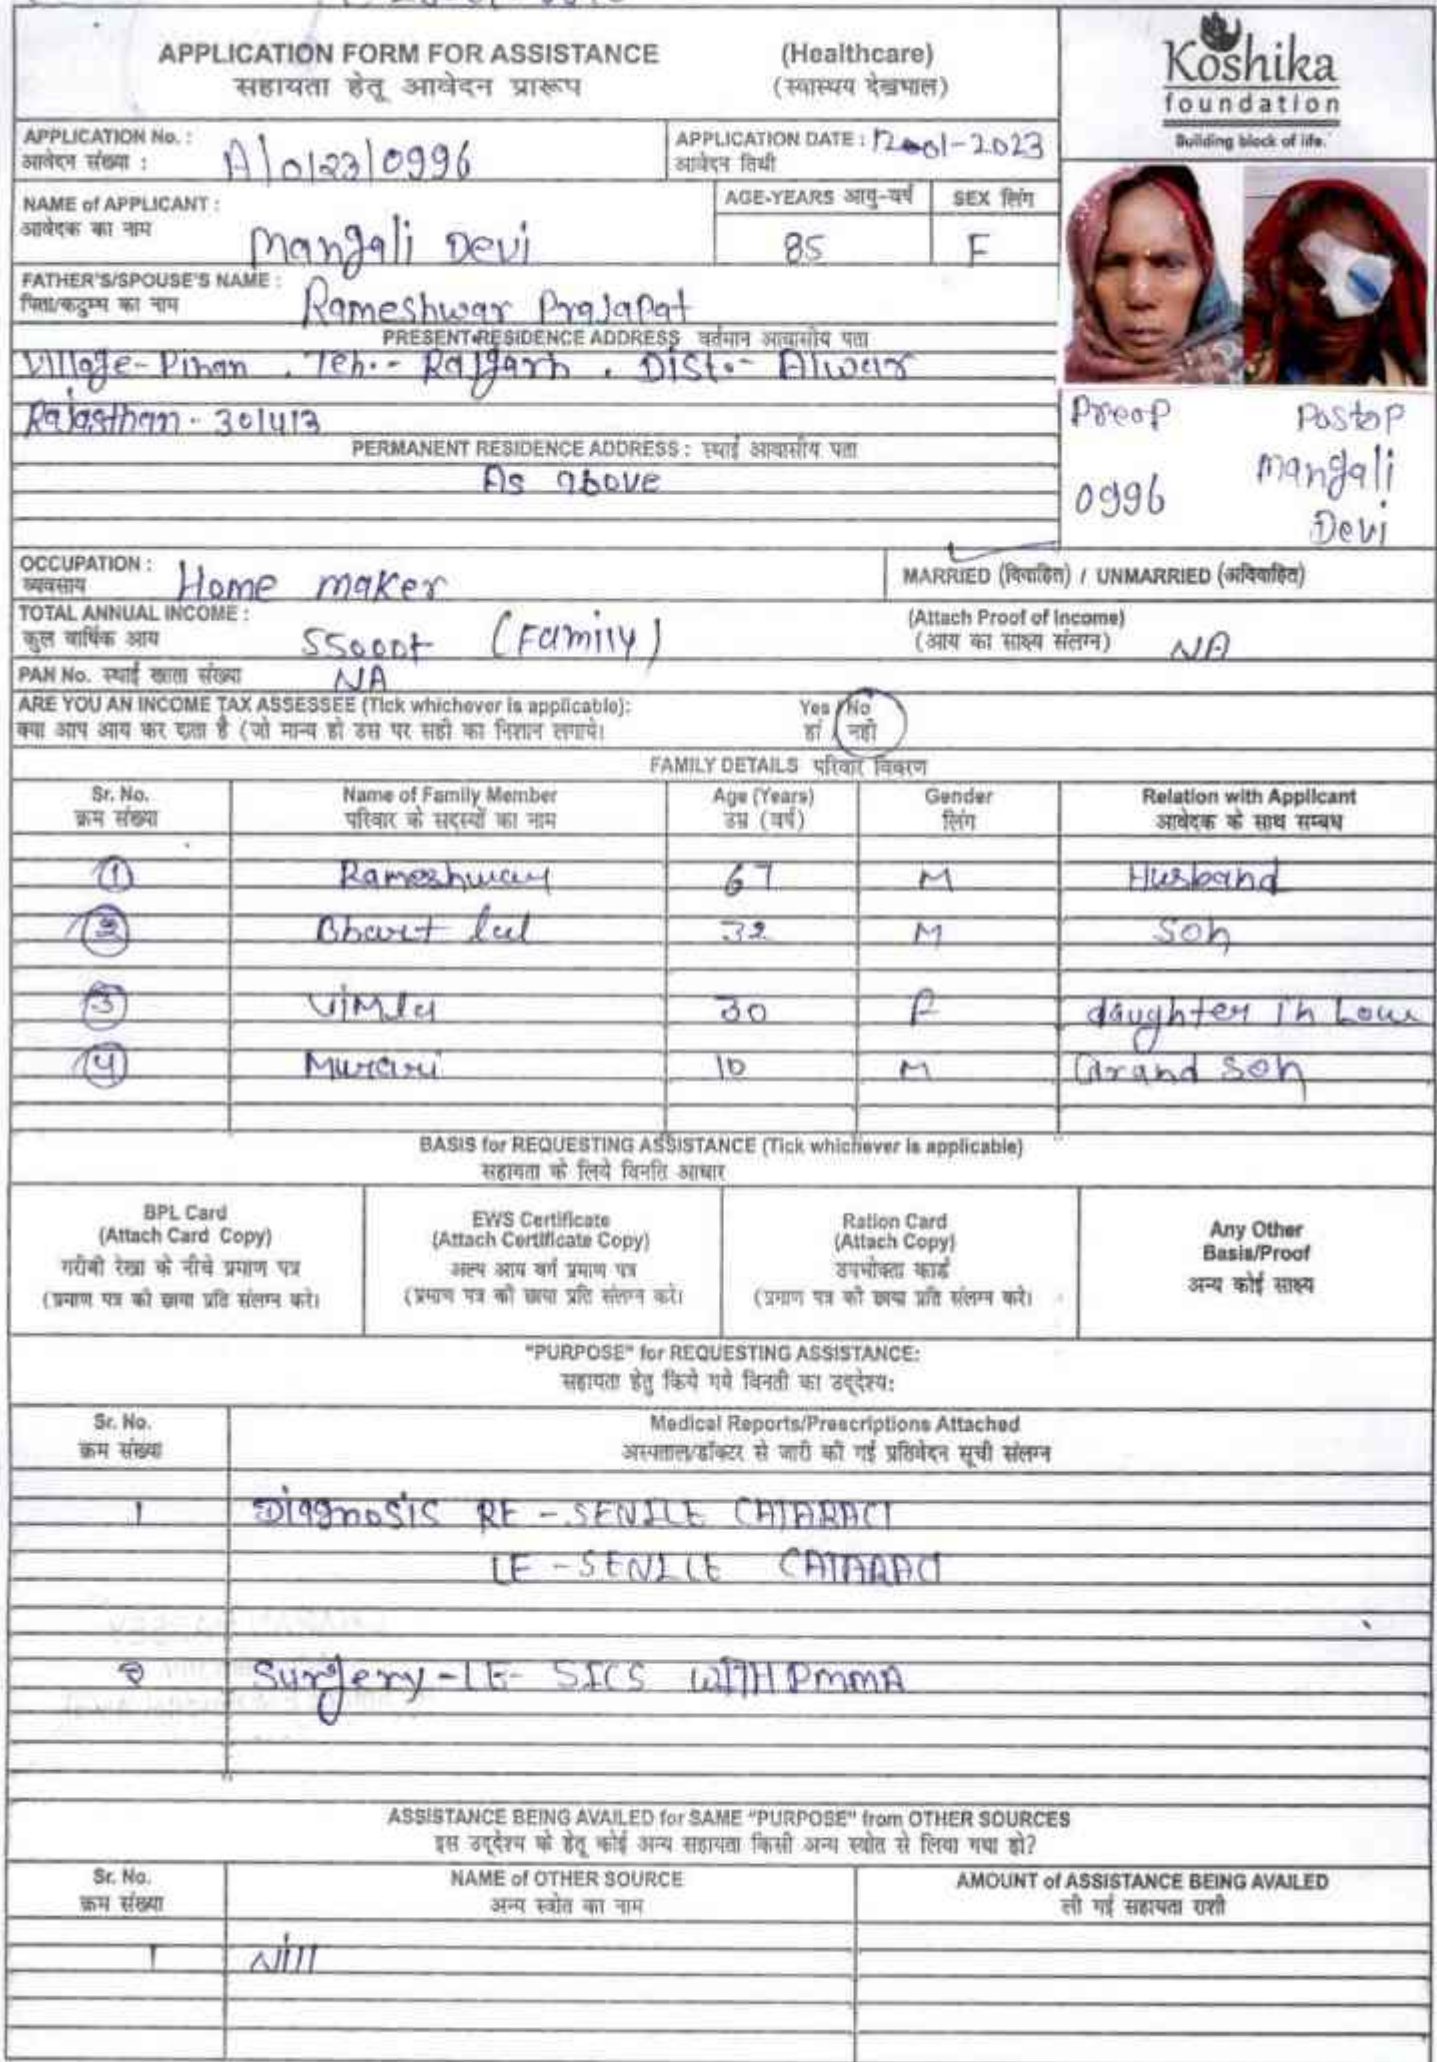 APPLICATION FORM FOR ASSISTANCE (Healthcare)
सहायता हेतू आवेदन प्रारूप (स्वास्थ्य देखभाल)
Koshika
foundation
Building block of life.
APPLICATION No. : A/0123/0996
आवेदन संख्या :
APPLICATION DATE : 12-01-2023
आवेदन तिथी
NAME of APPLICANT : Mangali Devi
आवेदक का नाम
AGE-YEARS आयु-वर्ष 85
SEX लिंग F
FATHER'S/SPOUSE'S NAME : Rameshwar Prajapat
पिता/कटुम्ब का नाम
PRESENT RESIDENCE ADDRESS वर्तमान आवासीय पता
Village-Pinan . Teh.- Rajgarh . Dist.- Alwar
Rajasthan - 301413
PERMANENT RESIDENCE ADDRESS : स्थाई आवासीय पता
As above
Preop Postop
0996 Mangali
Devi
OCCUPATION : Home maker
व्यवसाय
MARRIED (विवाहित) / UNMARRIED (अविवाहित)
TOTAL ANNUAL INCOME : 55000+ (Family)
कुल वार्षिक आय
(Attach Proof of Income)
(आय का साक्ष्य संलग्न) NA
PAN No. स्थाई खाता संख्या NA
ARE YOU AN INCOME TAX ASSESSEE (Tick whichever is applicable): Yes / No
क्या आप आय कर दाता है (जो मान्य हो उस पर सही का निशान लगाये। हां / नही
FAMILY DETAILS परिवार विवरण
Sr. No. Name of Family Member Age (Years) Gender Relation with Applicant
क्रम संख्या परिवार के सदस्यों का नाम उम्र (वर्ष) लिंग आवेदक के साथ सम्बध
1 Rameshwar 67 M Husband
2 Bhart lal 32 M Son
3 Vimla 30 F daughter in Low
4 Murari 10 M Grand Son
BASIS for REQUESTING ASSISTANCE (Tick whichever is applicable)
सहायता के लिये विनति आधार
BPL Card
(Attach Card Copy)
गरीबी रेखा के नीचे प्रमाण पत्र
(प्रमाण पत्र की छाया प्रति संलग्न करे।
EWS Certificate
(Attach Certificate Copy)
अल्प आय वर्ग प्रमाण पत्र
(प्रमाण पत्र की छाया प्रति संलग्न करे।
Ration Card
(Attach Copy)
उपभोक्ता कार्ड
(प्रमाण पत्र की छाया प्रति संलग्न करे।
Any Other
Basis/Proof
अन्य कोई साक्ष्य
"PURPOSE" for REQUESTING ASSISTANCE:
सहायता हेतु किये गये विनती का उद्देश्य:
Sr. No. Medical Reports/Prescriptions Attached
क्रम संख्या अस्पताल/डॉक्टर से जारी की गई प्रतिवेदन सूची संलग्न
1 Diagnosis RE - SENILE CATARACT
LE - SENILE CATARACT
2 Surgery - LE - SICS WITH PMMA
ASSISTANCE BEING AVAILED for SAME "PURPOSE" from OTHER SOURCES
इस उद्देश्य के हेतू कोई अन्य सहायता किसी अन्य स्त्रोत से लिया गया हो?
Sr. No. NAME of OTHER SOURCE AMOUNT of ASSISTANCE BEING AVAILED
क्रम संख्या अन्य स्त्रोत का नाम ली गई सहायता राशी
1 Nill